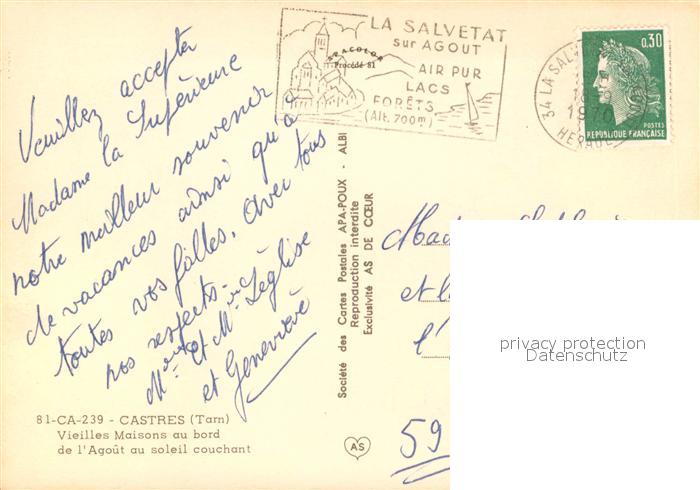 Veuillez accepter
Madame la Supérieure
notre meilleur souvenir
de vacances ainsi qu'à
toutes vos filles. Avec tous
nos respects.
et Mr Léglise
et Geneviève
81-CA-239 - CASTRES (Tarn)
Vieilles Maisons au bord
de l'Agoût au soleil couchant
Société des Cartes Postales APA-POUX - ALBI
Reproduction interdite
Exclusivité AS DE CŒUR
AS
LA SALVETAT
sur AGOUT
AIR PUR
LACS
FORÊTS
(Alt. 700m)
APACOLOR
Procédé 81
34 LA SAL
1970
HERAUL
0,30
POSTES
REPUBLIQUE FRANÇAISE
et l
l'
59
privacy protection
Datenschutz